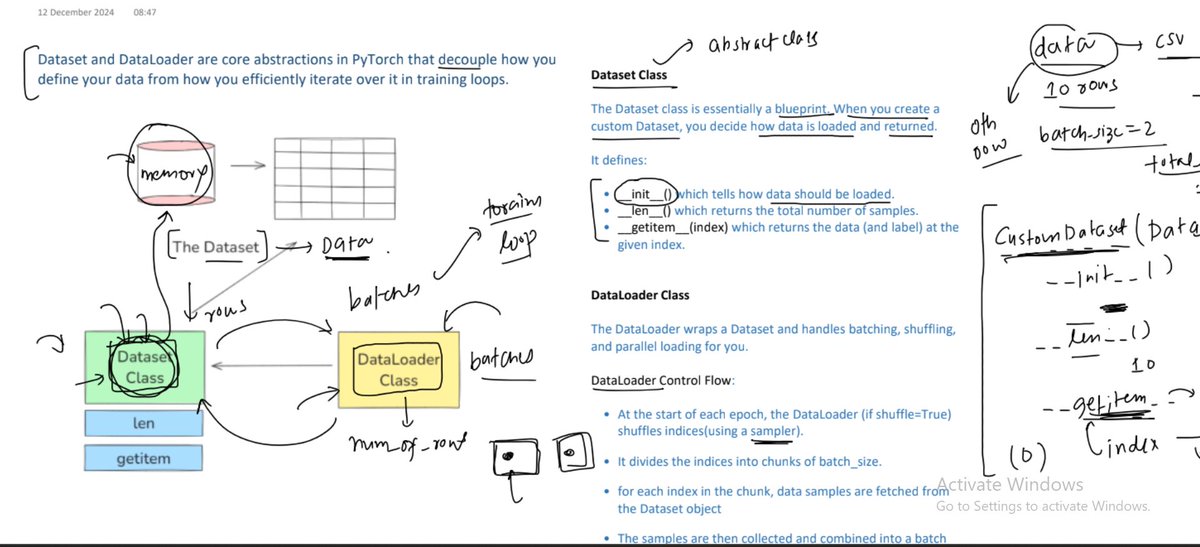 12 December 2024 08:47
Dataset and DataLoader are core abstractions in PyTorch that decouple how you
define your data from how you efficiently iterate over it in training loops.
memory
The Dataset
DATA
rows
batches
loop
Dataset
Class
len
getitem
DataLoader
Class
batches
num_of_rows
abstract class
Dataset Class
The Dataset class is essentially a blueprint. When you create a
custom Dataset, you decide how data is loaded and returned.
It defines:
• __init__() which tells how data should be loaded.
• __len__() which returns the total number of samples.
• __getitem__(index) which returns the data (and label) at the
given index.
DataLoader Class
The DataLoader wraps a Dataset and handles batching, shuffling,
and parallel loading for you.
DataLoader Control Flow:
• At the start of each epoch, the DataLoader (if shuffle=True)
shuffles indices(using a sampler).
• It divides the indices into chunks of batch_size.
• for each index in the chunk, data samples are fetched from
the Dataset object
• The samples are then collected and combined into a batch
data → CSV
10 rows
0th
row
batch_size=2
total
CustomDataset (Data
__init__()
__len__()
10
__getitem__
(index
(0)
Activate Windows
Go to Settings to activate Windows.